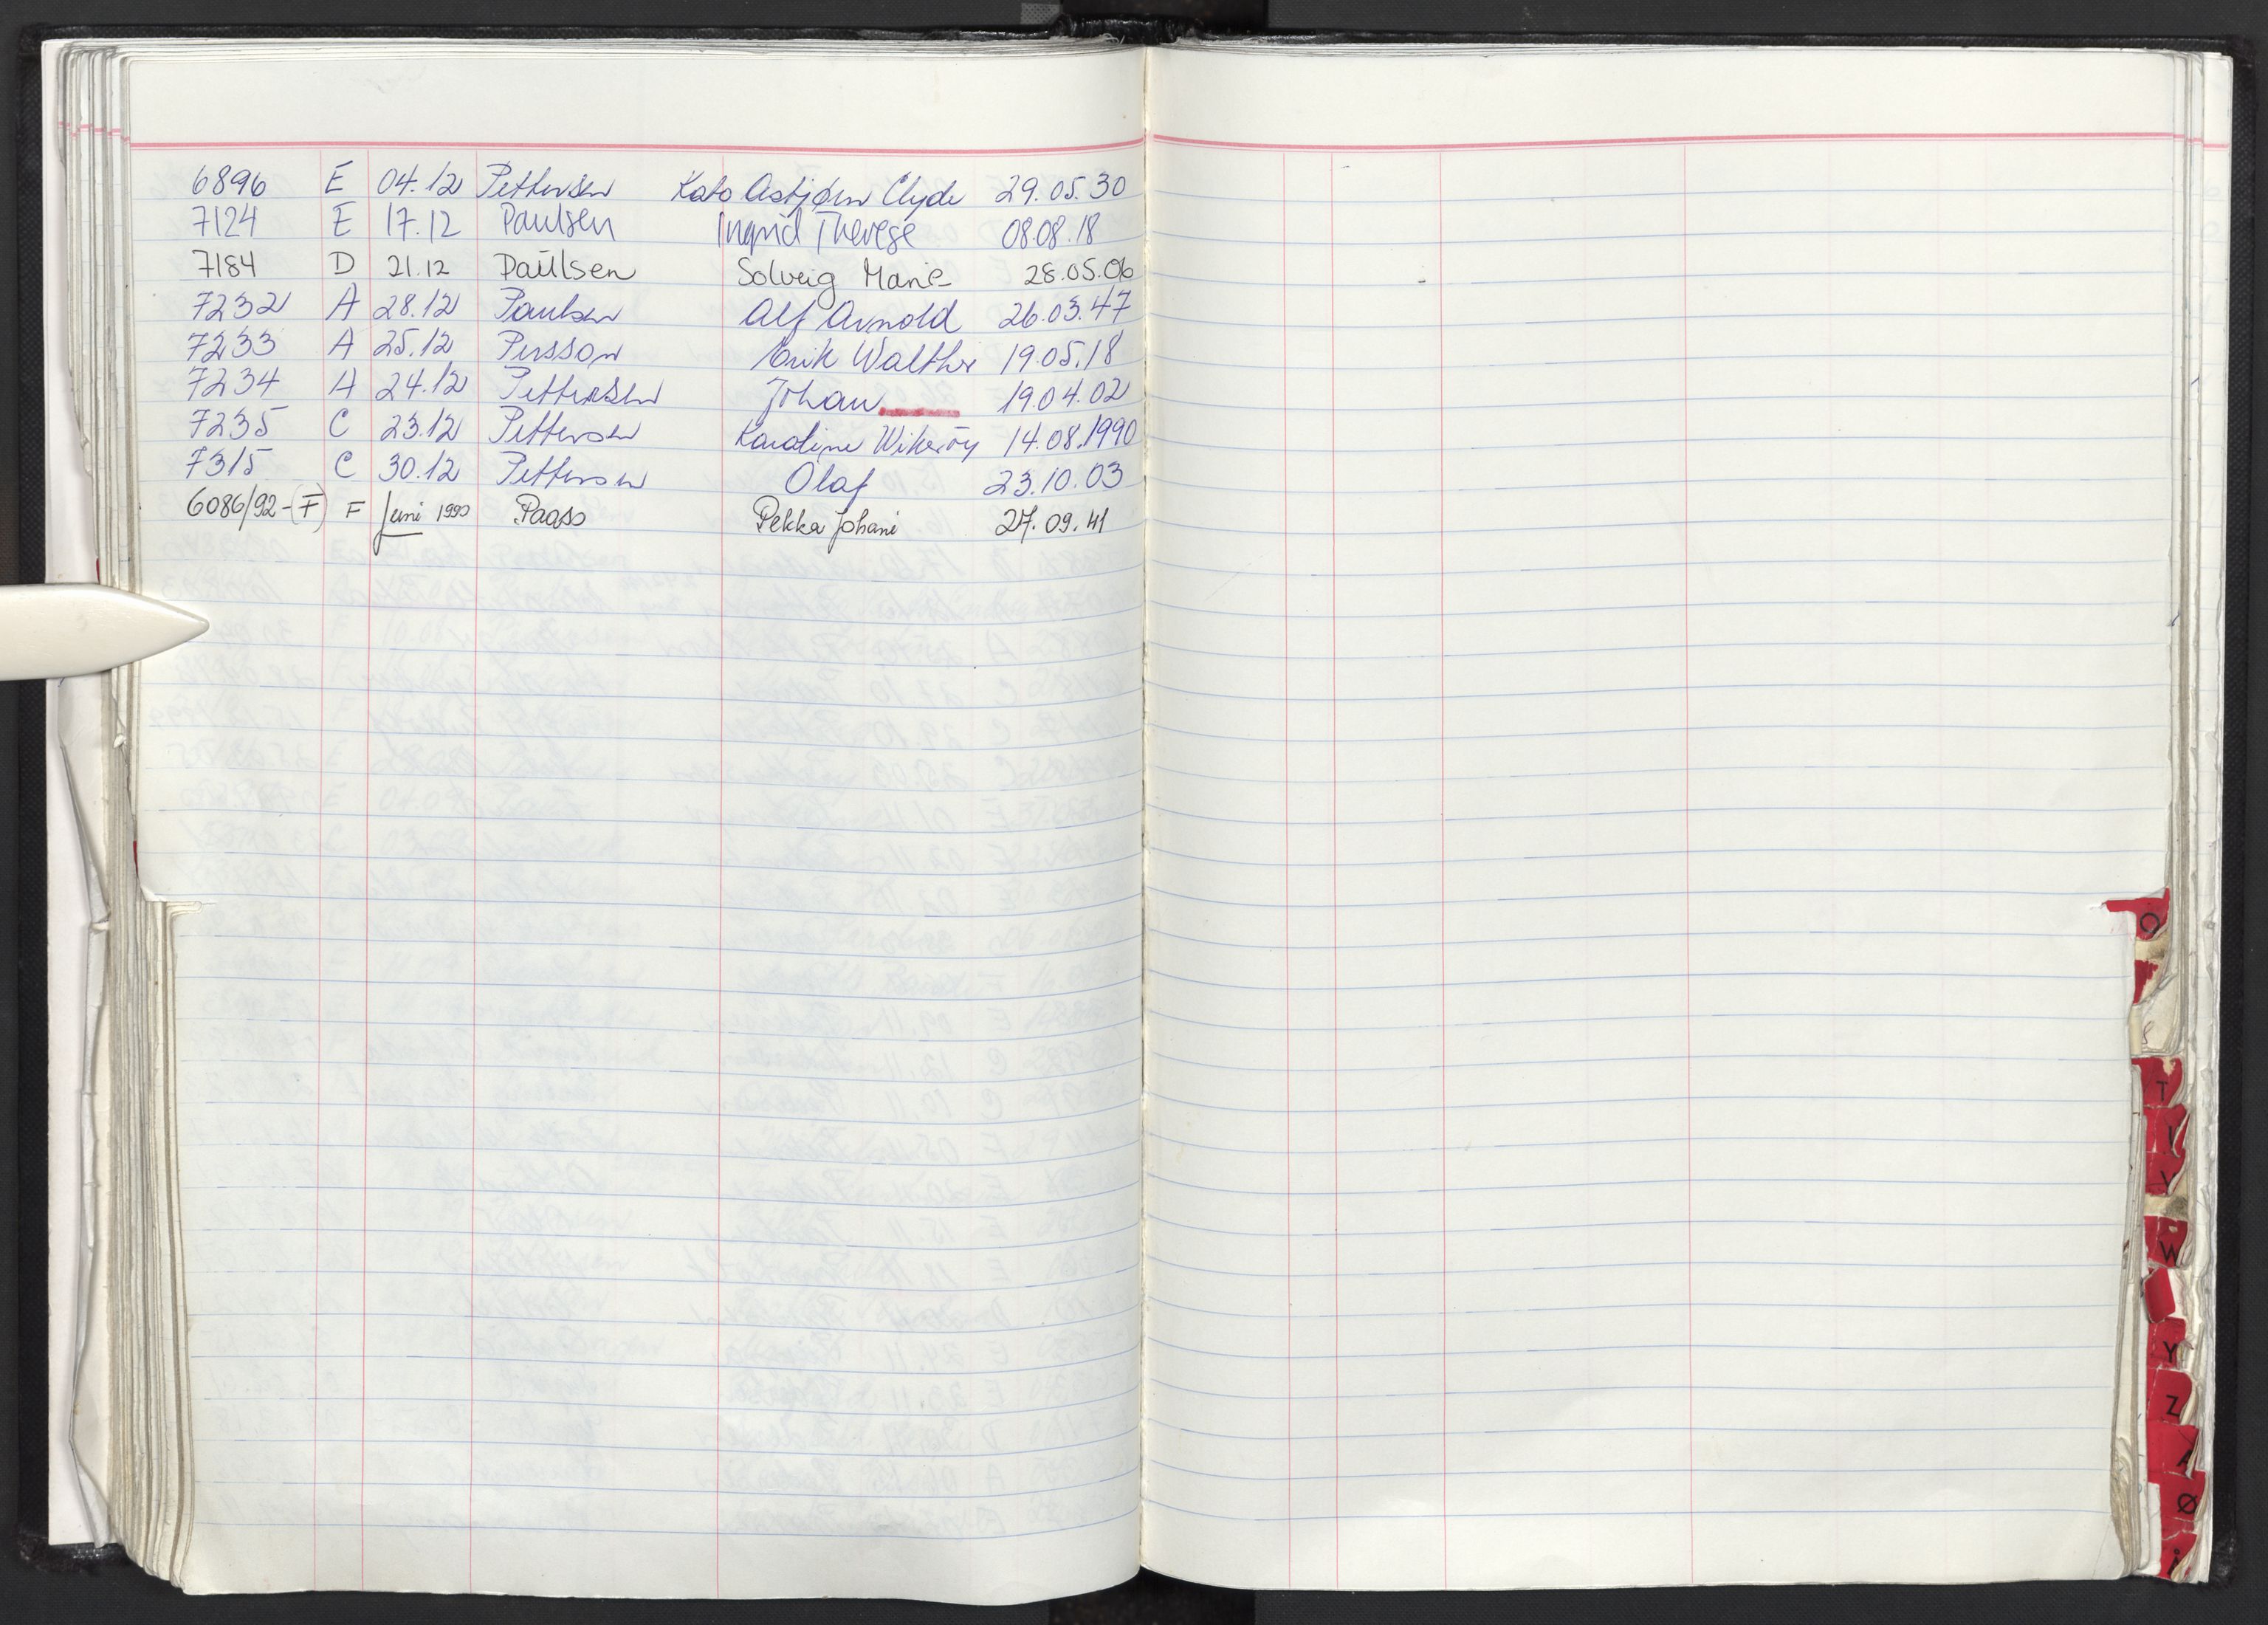 6896 E 04.12 Pettersen Kato Astjørn Clyde 29.05.30
7124 E 17.12 Paulsen Ingrid Therese 08.08.18
7184 D 21.12 Paulsen Solveig Marie 28.05.06
7232 A 28.12 Paulsen Alf Arnold 26.03.47
7233 A 25.12 Persson Erik Walther 19.05.18
7234 A 24.12 Pettersen Johan 19.04.02
7235 C 23.12 Pettersen Karoline 14.08.1990
7315 C 30.12 Pettersen Olaf 23.10.03
6086/92-(F) F Juni 1990 Paaso Pekka Johani 27.09.41
O
T
V
W
Y
Z
Ø